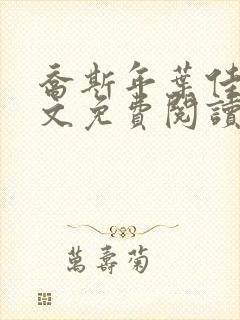 喬斯年葉佳
文免費閱讀
萬壽菊